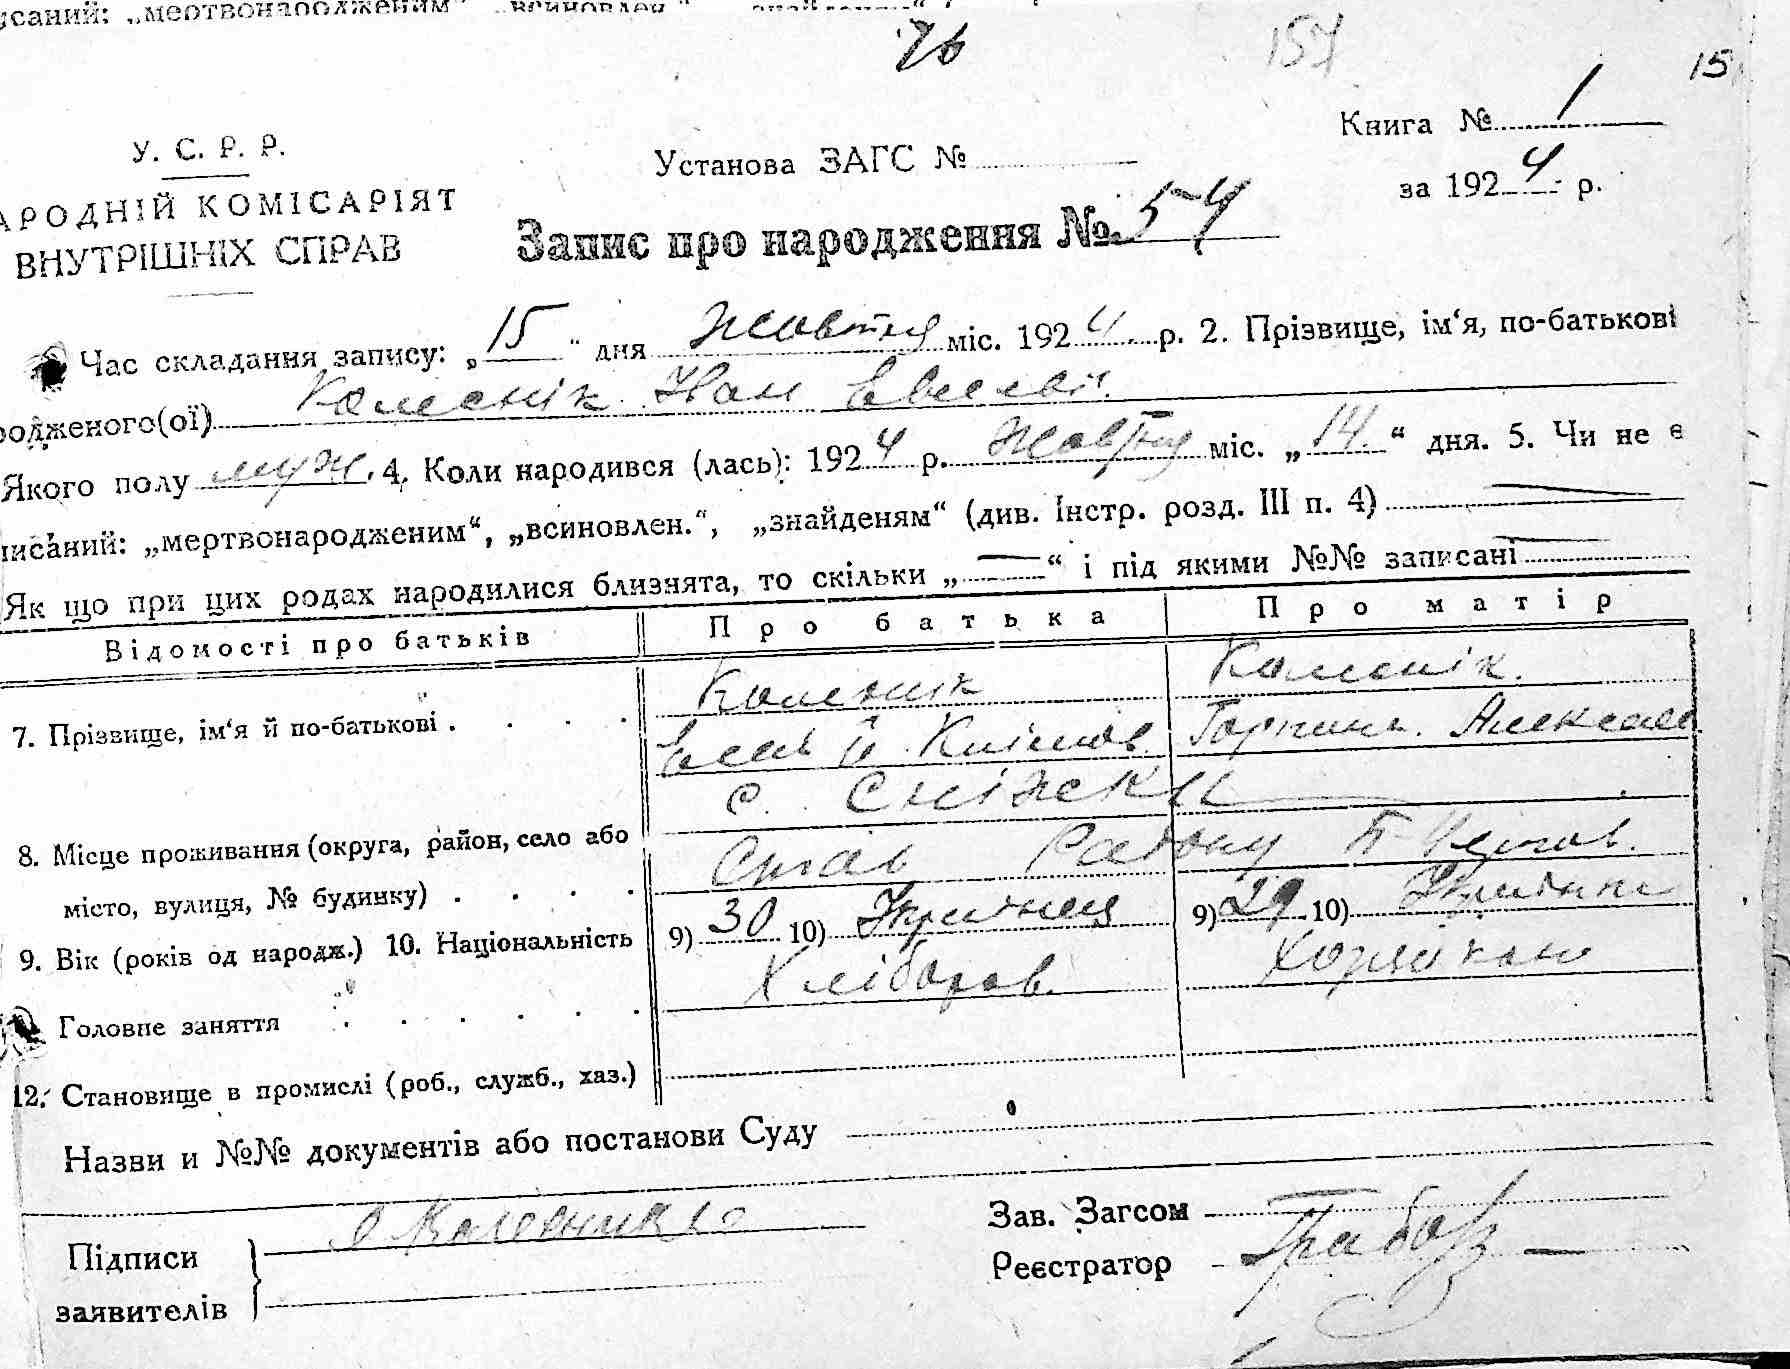 исаний: „мертвонародженим“ „всиновлен.“ „знайденям“
76 157 15
У. С. Р. Р.
АРОДНІЙ КОМІСАРІЯТ
ВНУТРІШНІХ СПРАВ
Установа ЗАГС №
Книга № 1
за 1924 р.
Запис про народження № 54
Час складання запису: „15“ дня Жовтня міс. 1924 р. 2. Прізвище, ім‘я, по-батькові
родженого(ої) Колеснік Іван Евсеєв.
Якого полу муж. 4. Коли народився (лась): 1924 р. Жовтня міс. „14.“ дня. 5. Чи не є
писаний: „мертвонародженим“, „всиновлен.“, „знайденям“ (див. Інстр. розд. III п. 4)
Як що при цих родах народилися близнята, то скільки „—“ і під якими №№ записані
Відомості про батьків Про батька Про матір
7. Прізвище, ім‘я й по-батькові Колеснік Колеснік.
Клімов. Горпина. Алексеев
с. Сніжки
8. Місце проживання (округа, район, село або
місто, вулиця, № будинку) Став Району Б-Церков.
9. Вік (років од народж.) 10. Національність 9) 30 10) Українец 9) 29 10) Українка
Головне заняття Хлібороб. Хозяйкою
12. Становище в промислі (роб., служб., хаз.)
Назви и №№ документів або постанови Суду
Підписи
заявителів
Зав. Загсом
Реєстратор